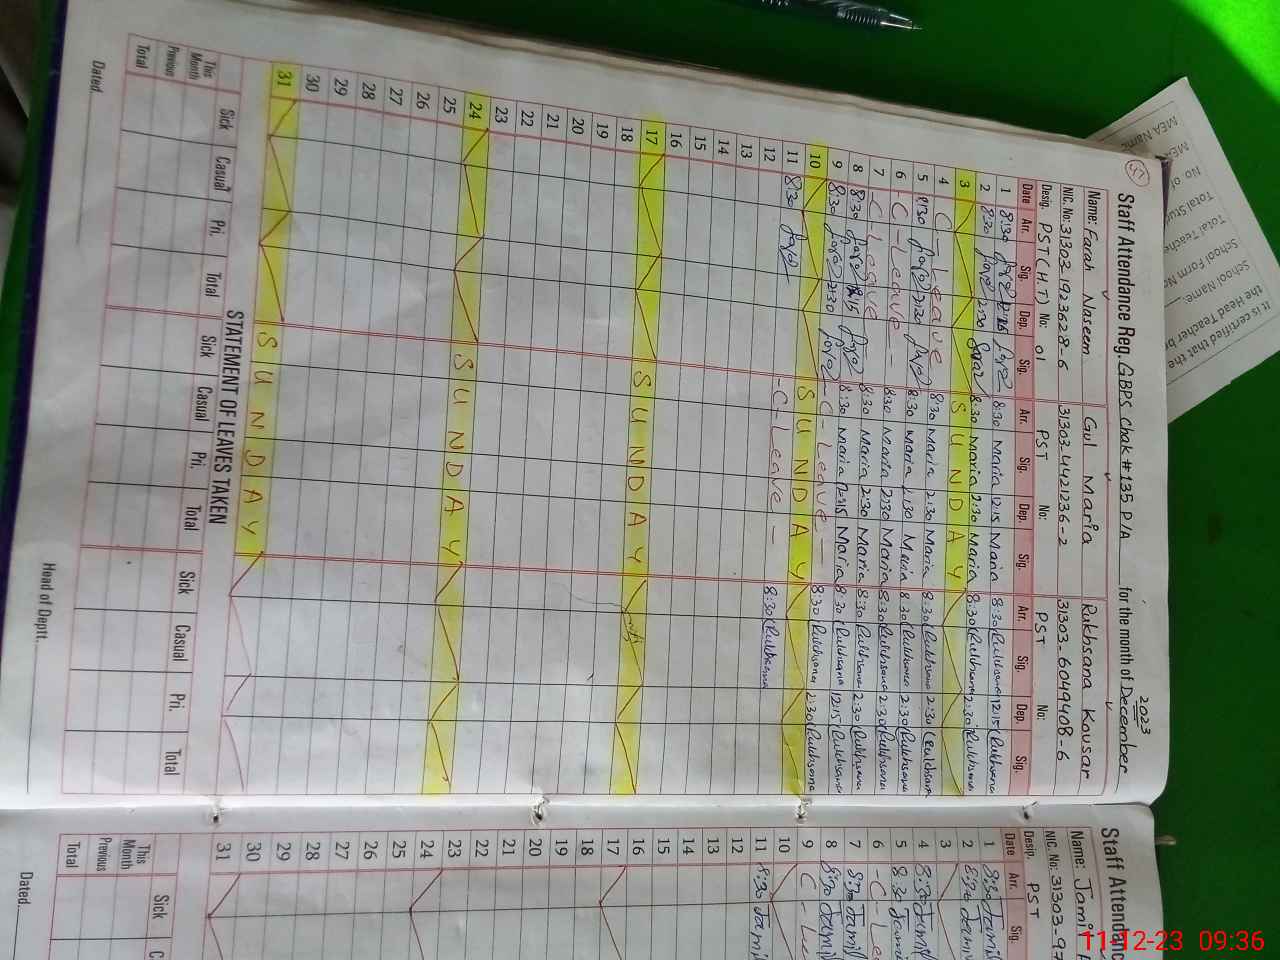 Staff Attendance Reg. GBPS Chak # 135 P/A for the month of December 2023
Name: Farah Naseem Gul Maria Rukhsana Kousar
NIC. No: 31303-1923628-6 31303-4421236-2 31303-6049408-6
Desig. PST (H.T) No: 01 PST No: PST No:
Date Arr. Sig. Dep. Sig. Arr. Sig. Dep. Sig. Arr. Sig. Dep. Sig.
1 8:30 8:30 Maria 12:15 Maria 8:30 Rukhsana 12:15 Rukhsana
2 8:30 2:30 8:30 Maria 2:30 Maria 8:30 Rukhsana 2:30 Rukhsana
3 S U N D A Y
4 C - Leave 8:30 Maria 2:30 Maria 8:30 Rukhsana 2:30 Rukhsana
5 8:30 2:30 8:30 Maria 2:30 Maria 8:30 Rukhsana 2:30 Rukhsana
6 - C - Leave - 8:30 Maria 2:30 Maria 8:30 Rukhsana 2:30 Rukhsana
7 - C - Leave - 8:30 Maria 2:30 Maria 8:30 Rukhsana 2:30 Rukhsana
8 8:30 8:30 Maria 12:15 Maria 8:30 Rukhsana 12:15 Rukhsana
9 8:30 2:30 - C - Leave - 8:30 Rukhsana 2:30 Rukhsana
10 S U N D A Y
11 8:30 - C - Leave - 8:30 Rukhsana
12
13
14
15
16
17 S U N D A Y
18
19
20
21
22
23
24 S U N D A Y
25
26
27
28
29
30
31 S U N D A Y
STATEMENT OF LEAVES TAKEN
Sick Casual Pri. Total Sick Casual Pri. Total Sick Casual Pri. Total
This Month
Previous
Total
Dated. Head of Deptt.
Staff Attendanc
Name: Jami
NIC. No: 31303-97
Desig. PST
Date Arr. Sig.
1 8:30
2 8:30
3
4 8:30
5 8:30
6 - C - Le
7 8:30 Jamil
8 8:30 Jamil
9 C - Le
10
11 8:30 Jamil
12
13
14
15
16
17
18
19
20
21
22
23
24
25
26
27
28
29
30
31
Sick C
This Month
Previous
Total
Dated.
It is certified that the
the Head Teacher b
School Name:
School Form N
Total Teache
Total Stu
No of
MEA
MEA Name
11-12-23 09:36